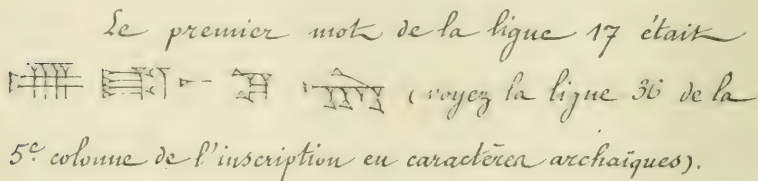 Le premier mot de la ligne 17 était
(voyez la ligne 36 de la
5e colonne de l'inscription en caractères archaïques).